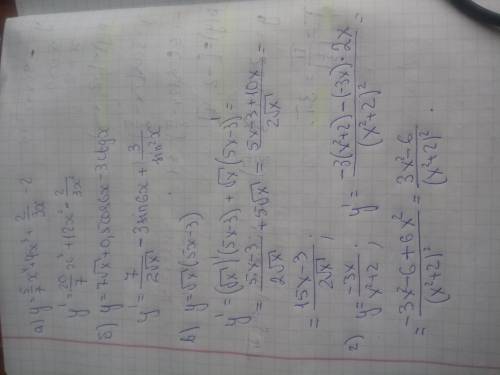 а) y = 5/7 x⁴ + 4x³ + 2/3x - 2
y' = 20/7 x³ + 12x² - 2/3x²
б) y = 7√x + 0,5cos6x - 3ctgx
y' = 7/2√x - 3sin6x + 3/sin²x
в) y = √x (5x-3)
y' = (√x)'(5x-3) + √x (5x-3)' =
= 5x-3/2√x + 5√x = 5x-3+10x/2√x =
= 15x-3/2√x .
г) y = -3x/x²+2 ; y' = -3(x²+2) - (-3x)·2x/(x²+2)²
= -3x²-6+6x²/(x²+2)² = 3x²-6/(x²+2)² .